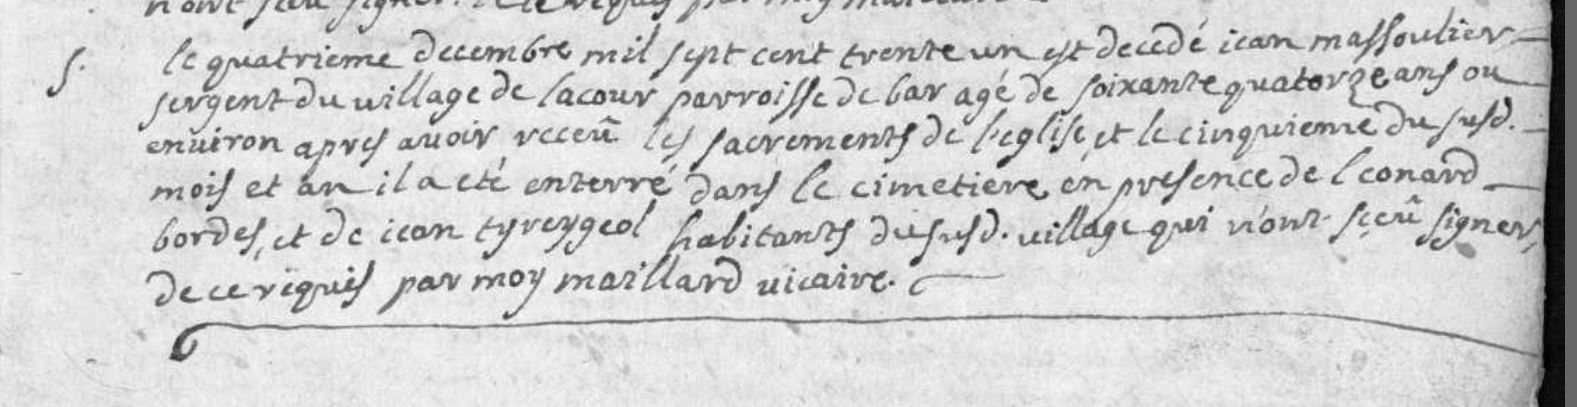 n'ont sceu signer. de ce requis par moy maillard
S. le quatrieme decembre mil sept cent trente un est decedé iean massoulier
sergent du uillage de lacour parroisse de bar agé de soixante quatorze ans ou
enuiron apres auoir receu les sacrements de l'eglise, et le cinquieme du susd.
mois et an il a eté enterré dans le cimetiere en presence de leonard
bordes, et de iean tyreygeol habitants du susd. uillage qui n'ont sçeu signer,
de ce requis par moy maillard uicaire.